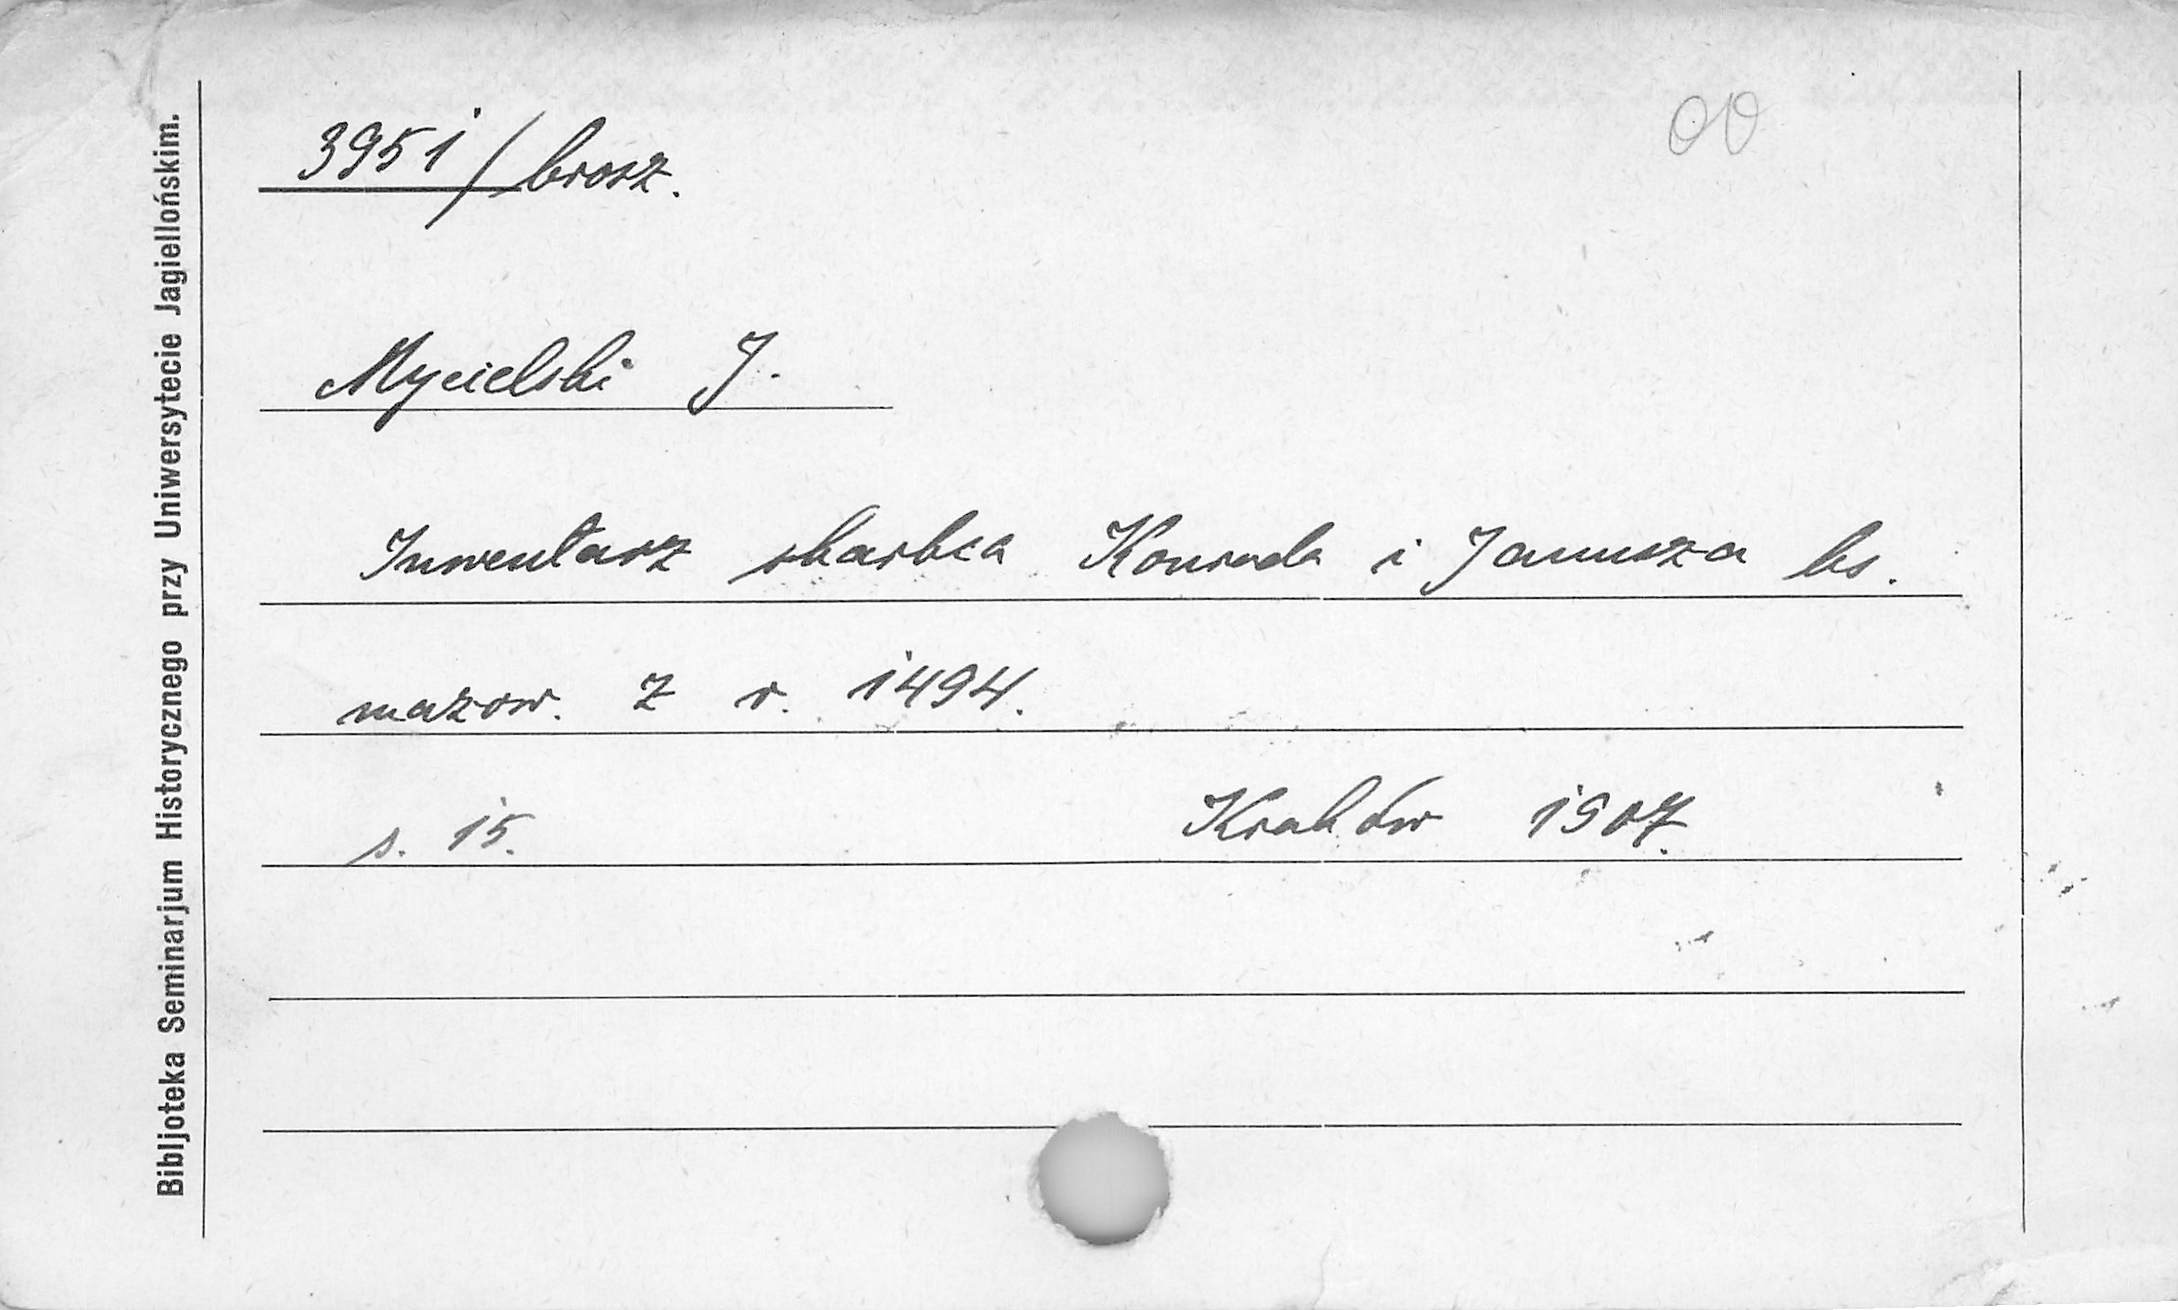 3951/brosz.
OO
Mycielski J.
Inwentarz skarbca Konrada i Janusza ks.
mazow. z r. 1494.
s. 15. Kraków 1907.
Bibljoteka Seminarjum Historycznego przy Uniwersytecie Jagiellońskim.